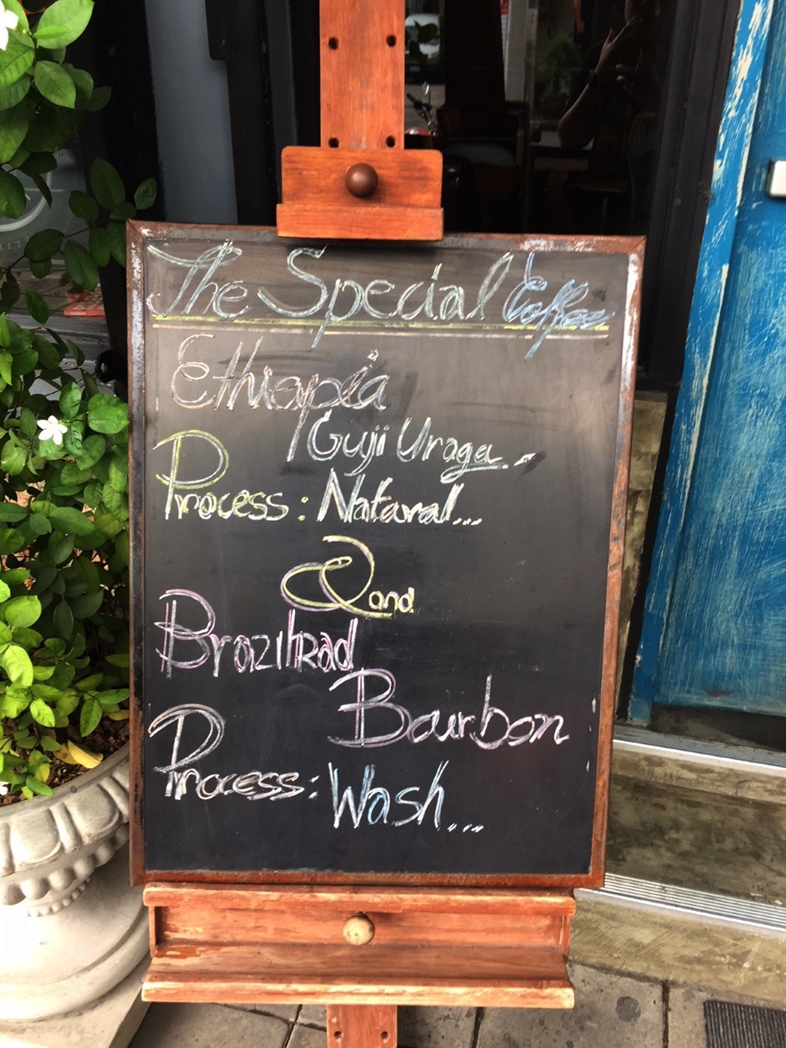 The Special Coffee
Ethiopia
Guji Uraga.
Process: Natural...
and
Brazil Red
Bourbon
Process: Wash...